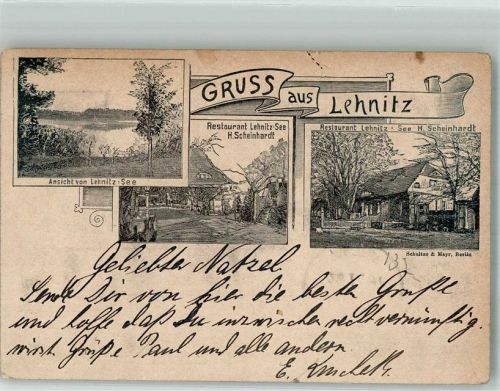 GRUSS aus Lehnitz
Ansicht von Lehnitz-See
Restaurant Lehnitz-See
H. Scheinhardt
Restaurant Lehnitz-See H. Scheinhardt
Schultze & Mayr, Berlin
Geliebter Natzel
Sende Dir von hier die besten Grüße
und hoffe daß Du inzwischen recht vernünftig
wirst Grüße Paul und alle andern
E.